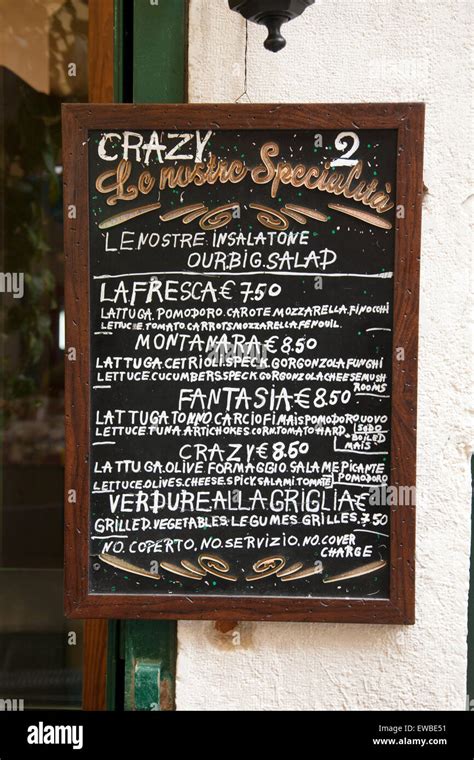 CRAZY 2
Le nostre Specialità
LE NOSTRE. INSALATONE
OUR.BIG.SALAD
LA FRESCA € 7.50
LATTUGA. POMODORO. CAROTE. MOZZARELLA. FINOCCHI
LETTUCE. TOMATO. CARROTS MOZZARELLA FENOUIL.
MONTANARA € 8.50
LATTUGA. CETRIOLI. SPECK. GORGONZOLA. FUNGHI
LETTUCE. CUCUMBERS. SPECK. GORGONZOLA CHEESE MUSH
ROOMS
FANTASIA € 8.50
LATTUGA TONNO CARCIOFI MAIS POMODORO UOVO
SODO
LETTUCE TUNA. ARTICHOKES. CORN. TOMATO HARD
BOILED
MAIS
CRAZY € 8.50
LATTUGA. OLIVE FORMAGGIO SALAME PICANTE
LETTUCE. OLIVES. CHEESE. SPICY SALAMI TOMATE
POMODORO
VERDURE ALLA GRIGLIA €
GRILLED. VEGETABLES. LEGUMES GRILLES. 7.50
NO. COPERTO. NO. SERVIZIO. NO. COVER
CHARGE
alamy
alamy stock photo
EWBE51
www.alamy.com